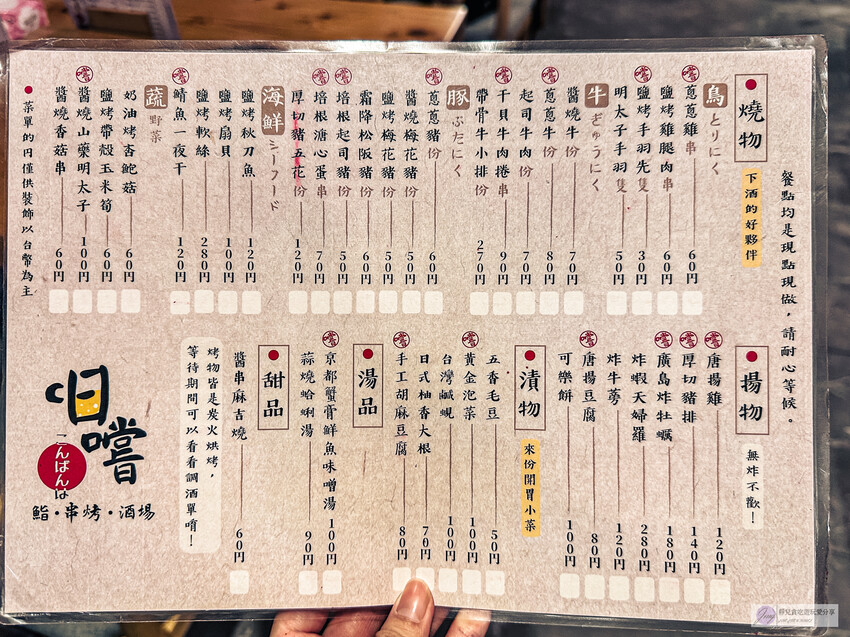 餐點均是現點現做，請耐心等候。
燒物
下酒的好夥伴
鳥 とりにく
嚐 蔥蔥雞串 60円
鹽烤雞腿肉串 60円
嚐 鹽烤手羽先隻 30円
明太子手羽隻 50円
牛 ぎゅうにく
醬燒牛份 70円
嚐 蔥蔥牛份 80円
起司牛肉份 70円
嚐 干貝牛肉捲串 90円
帶骨牛小排份 270円
豚 ぶたにく
嚐 蔥蔥豬份 60円
醬燒梅花豬份 50円
鹽烤梅花豬份 50円
霜降松阪豬份 60円
嚐 培根起司豬份 50円
嚐 培根溏心蛋串 70円
厚切豬五花份 120円
海鮮 シーフード
鹽烤秋刀魚 120円
鹽烤扇貝 100円
鹽烤軟絲 280円
嚐 鯖魚一夜干 120円
蔬 野菜
奶油烤杏鮑菇 60円
鹽烤帶殼玉米筍 60円
嚐 醬燒山藥明太子 100円
醬燒香菇串 60円
菜單的円僅供裝飾以台幣為主
揚物
無炸不歡！
嚐 唐揚雞 120円
嚐 厚切豬排 140円
嚐 廣島炸牡蠣 180円
炸蝦天婦羅 280円
炸牛蒡 120円
嚐 唐揚豆腐 80円
可樂餅 100円
漬物
來份開胃小菜
五香毛豆 50円
嚐 黃金泡菜 100円
台灣鹹蜆 100円
日式柚香大根 70円
嚐 手工胡麻豆腐 80円
湯品
嚐 京都蟹膏鮮魚味噌湯 100円
蒜燒蛤蜊湯 90円
甜品
醬串麻吉燒 60円
烤物皆是炭火烘烤，
等待期間可以看看調酒單唷！
旧嚐
こんばんは
鮨・串烤・酒場